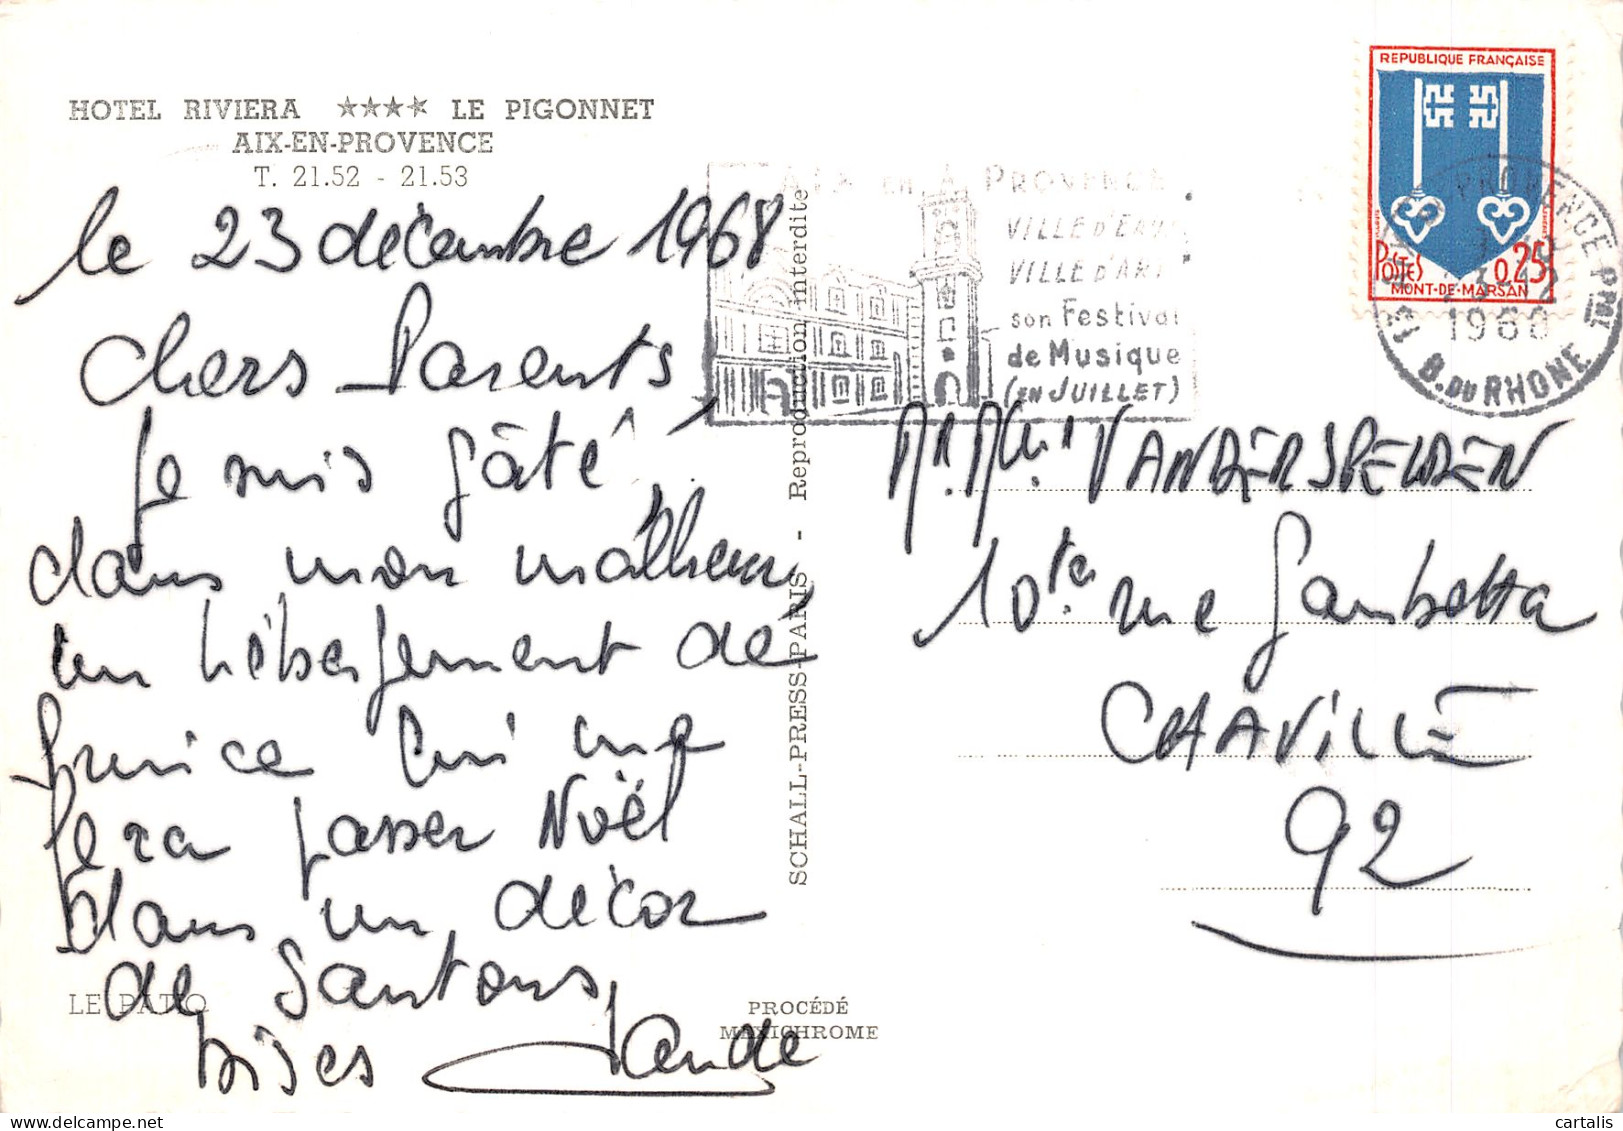 HOTEL RIVIERA ★★★★ LE PIGONNET
AIX-EN-PROVENCE
T. 21.52 - 21.53
le 23 décembre 1968
Chers Parents,
Je suis gâté,
dans mon malheur,
un hébergement de
qui me
fera passer Noël
dans un décor
de Santons,
bises
LE PATIO
PROCÉDÉ
MEXICHROME
SCHALL-PRESS-PARIS - Reproduction interdite
AIX EN PROVENCE
VILLE D'EAUX
VILLE D'ART
son Festival
de Musique
(EN JUILLET)
REPUBLIQUE FRANÇAISE
POSTES 0,25
MONT-DE-MARSAN
PROVENCE Pal
1968
13 B. DU RHONE
VANDERSPELDEN
10 ter rue Gambetta
CHAVILLE
92
cartalis
delcampe.net